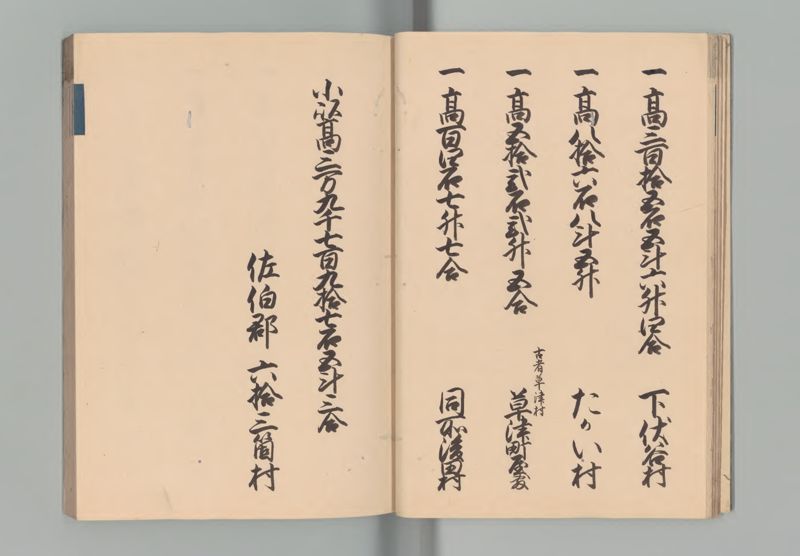 一高三百拾五石五斗六升四合 下伏谷村
一高八拾六石八斗五升 たかい村
一高五拾弐石弐升五合 古者草津村 草津町屋敷
一高百四石七升七合 同所後田村
小以高三万九千七百九拾七石五斗三合
佐伯郡 六拾三箇村